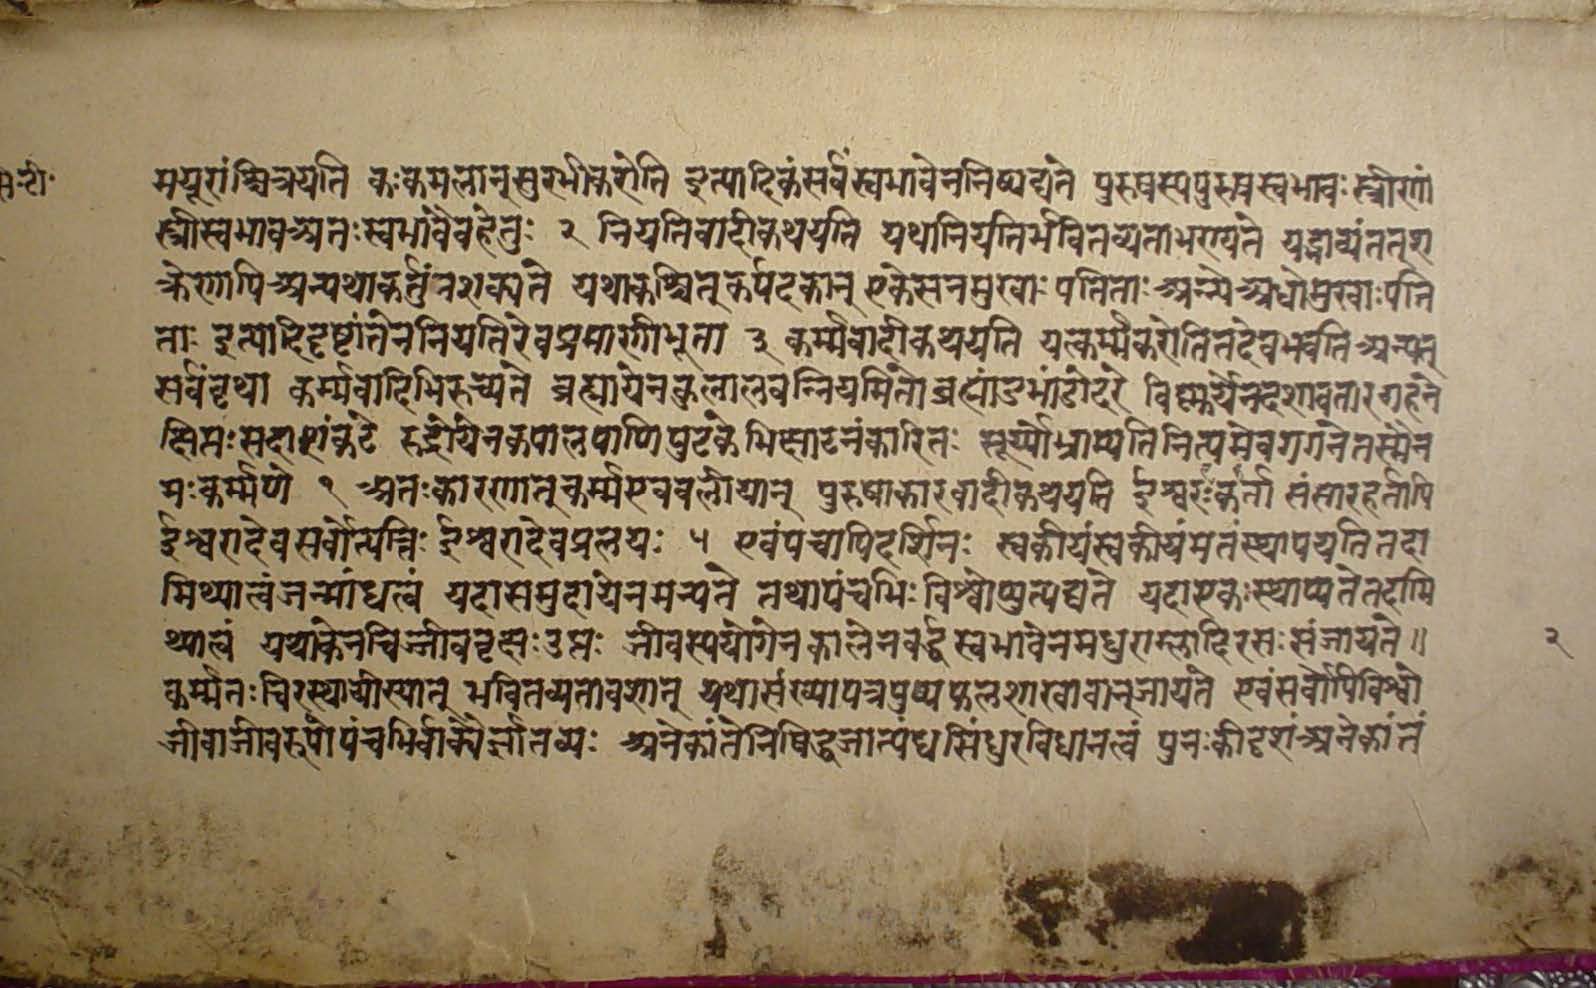 मयूरांश्चित्रयति कःकमलान्सुरभीकरोति इत्यादिकंसर्वंस्वभावेननिष्पद्यते पुरुषस्यपुरुषस्वभावः स्त्रीणां
स्त्रीस्वभावअतःस्वभावैवहेतुः २ नियतिवादीकथयति यथानियतिर्भवितव्यताभण्यते यद्भाव्यंतत्श
क्रेणापिअन्यथाकर्तुंनशक्यते यथाकश्चित्कर्पदकान् एकेसनमुखाः पतिताः अन्येअधोमुखाःपति
ताः इत्यादिदृष्टांतेननियतिरेवप्रमाणीभूता ३ कर्म्मवादीकथयति यत्कर्म्मकरोतितदेवभवतिअन्यत्
सर्वंवृथा कर्म्मवादिभिरुच्यते ब्रह्मायेनकुलालवन्नियमितोब्रह्मांडभांडोदरे विष्णुर्येनदशावतारगहने
क्षिप्तःसदाशंकटे रुद्रोयेनकपालपाणिपुटके भिक्षाटनंकारितः सूर्य्योभ्राम्यतिनित्यमेवगगनेतस्मैन
मःकर्म्मणे १ अतःकारणात्कर्म्मएवबलीयान् पुरुषाकारवादीकथयति ईश्वरःकर्ता संसारहर्तापि
ईश्वरादेवसर्वोत्पत्तिः ईश्वरादेवप्रलयः ५ एवंपंचापिदर्शिनः स्वकीयंस्वकीयंमतंस्थापयतितदा
मिथ्यात्वंजन्मांधत्वं यदासमुदायेनमन्यते तथापंचभिःविश्वोप्युत्पद्यते यदाएकःस्थाप्यतेतदामि
थ्यात्वं यथाकेनचिज्जीववृक्षःउप्तः जीवस्ययोगेनकालेनवर्द्धस्वभावेनमधुराम्लादिरसःसंजायते॥
कर्म्मतःचिरस्थायीस्यात् भवितव्यतावशात् यथासंख्यापत्रपुष्पफलशाखावान्जायते एवंसर्वोपिविश्वो
जीवाजीवरूपोपंचभिर्वाक्यैर्ज्ञातव्यः अनेकांतेनिषिद्धजात्यंधसिंधुरविधानत्वं पुनःकीदृशंअनेकांतं
२